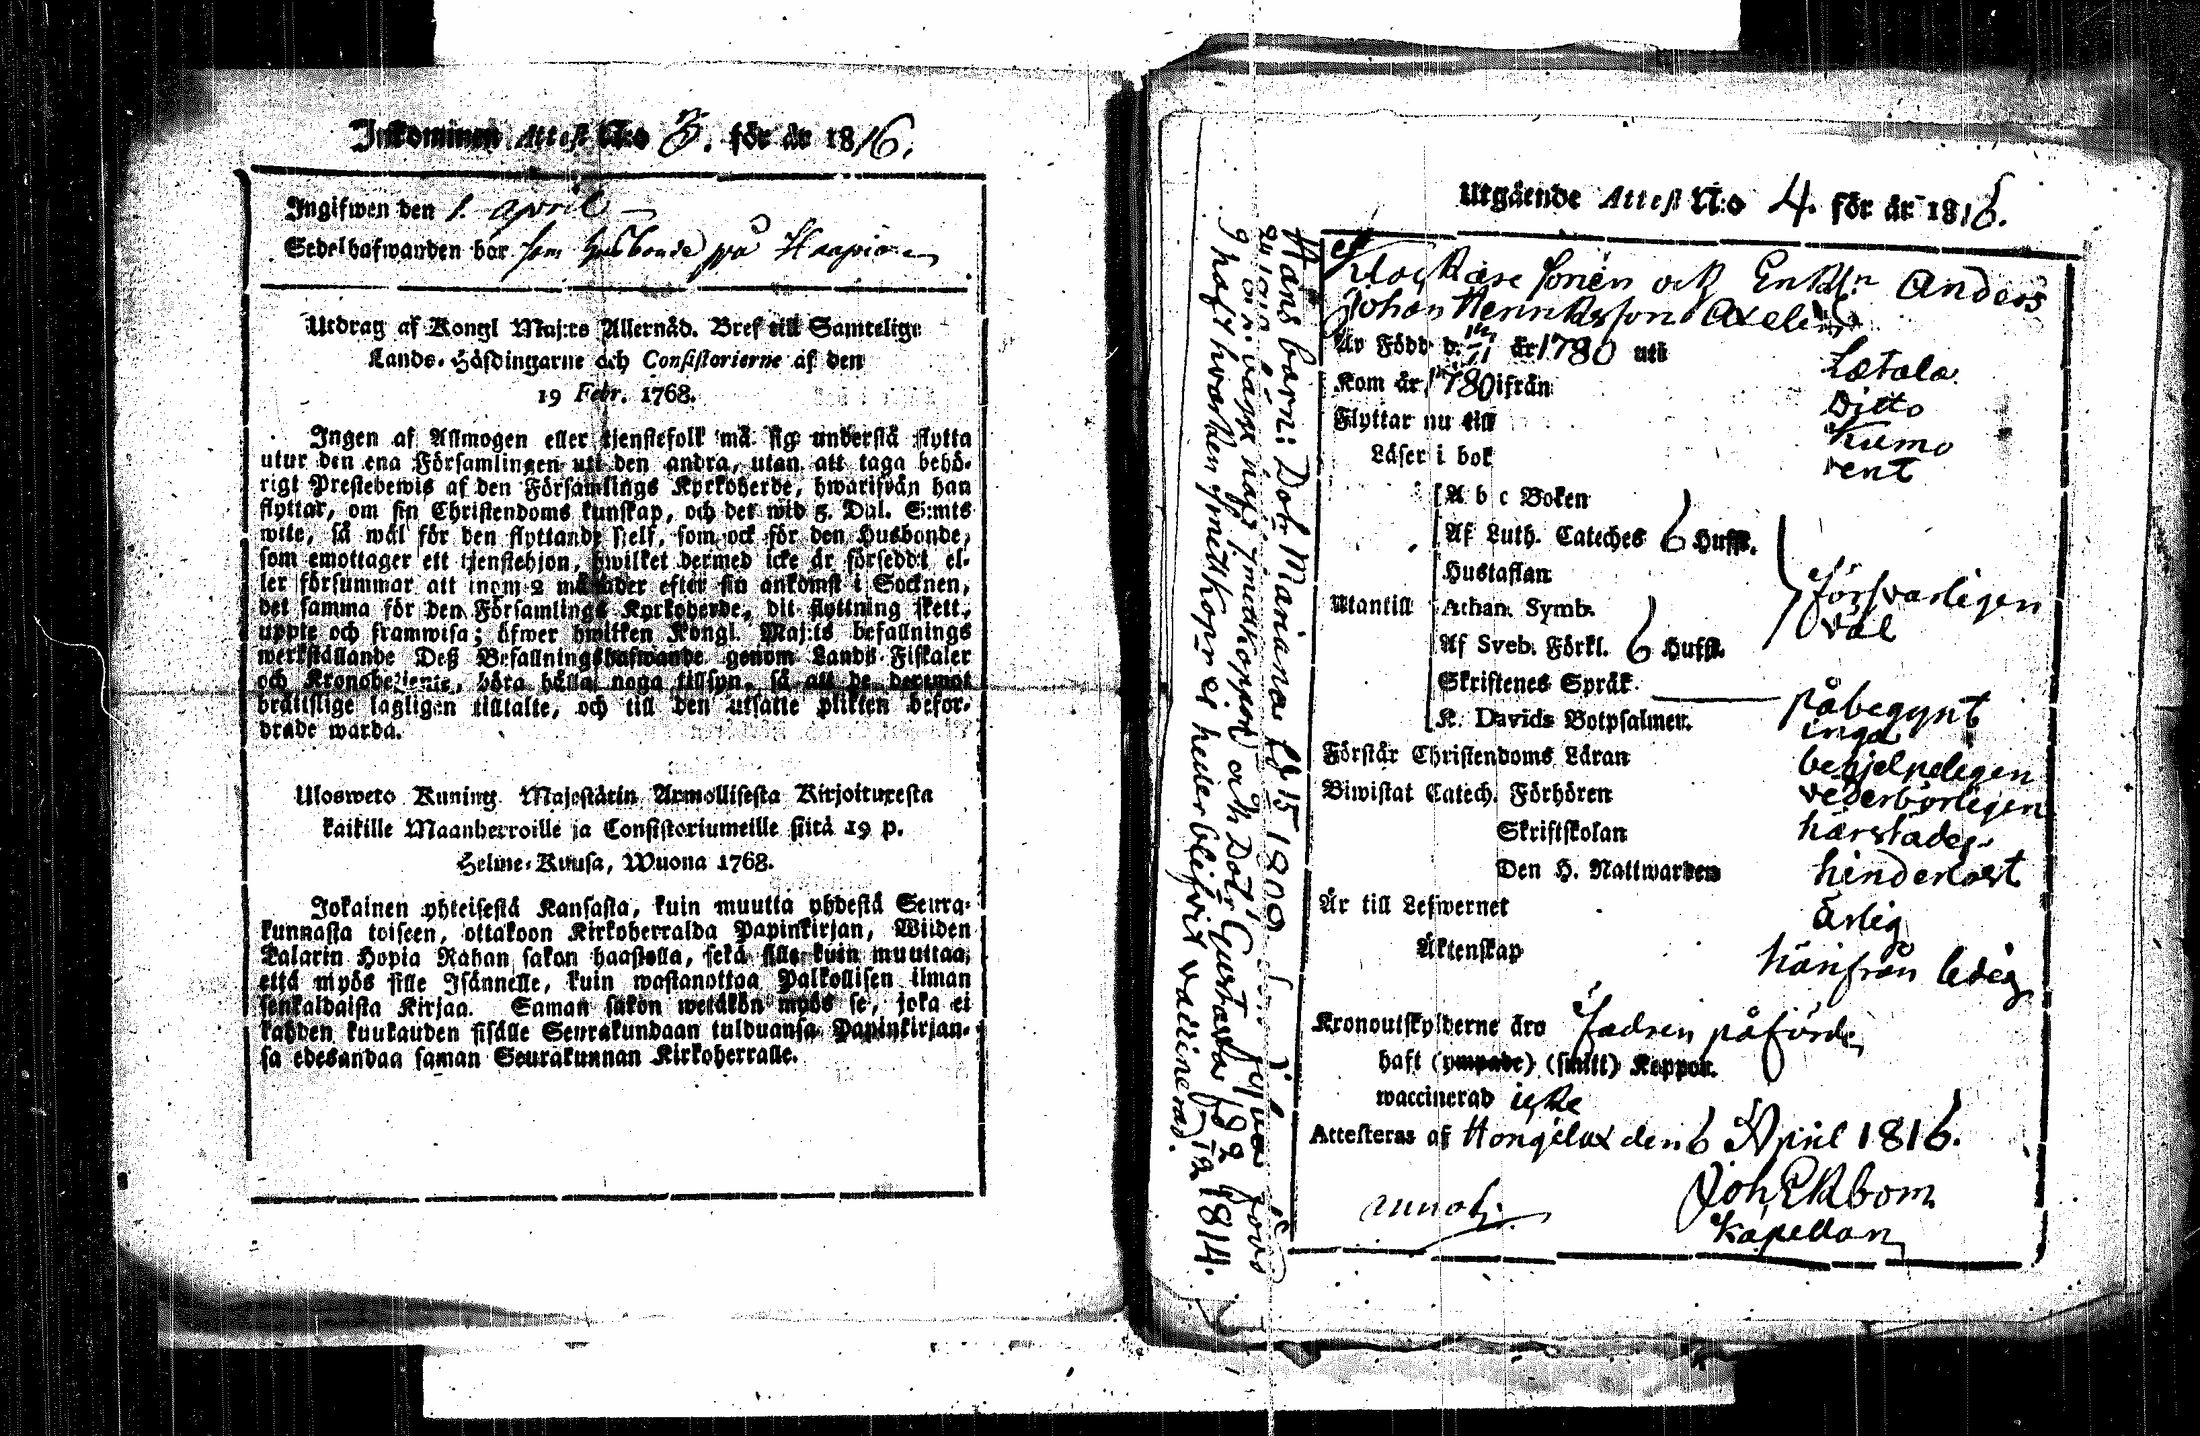 Inkommen Attest N:o 3. för år 1816.
Ingifwen den 1. april
Sedelhafwanden bor som husbonde på Haapio
Utdrag af Kongl Maj:ts Allernåd. Bref till Samtelige
Lands-Höfdingarne och Consistorierne af den
19 Febr. 1768.
Ingen af Allmogen eller tjenstefolk må sig understå flytta
utur den ena Församlingen uti den andra, utan att taga behö-
rigt Prestebewis af den Församlings Kyrkoherde, hwarifrån han
flyttar, om sin Christendoms kunskap, och det wid 5. Dal. S:mts
wite, så wäl för den flyttande sjelf, som ock för den Husbonde,
som emottager ett tjenstehjon, hwilket dermed icke är förseddt el-
ler försummar att inom 2 månader efter sin ankomst i Socknen,
det samma för den Församlings Kyrkoherde, dit flyttning skett,
uppte och framwisa; öfwer hwilken Kongl. Maj:ts befallnings
werkställande Deß Befallningshafwande genom Lands Fiskaler
och Kronobetjente, böra hålla noga tillsyn, så att de deremot
bråttslige lagligen tilltalte, och till den utsatte plikten befor-
drade warda.
Ulosweto Kuning. Majestätin Armollisesta Kirjoituxesta
kaikille Maanherroille ja Consistoriumeille siitä 19 p.
Helme-Kuusa, Wuona 1768.
Jokainen yhteisestä Kansasta, kuin muutta yhdestä Seura-
kunnasta toiseen, ottakoon Kirkoherralda Papinkirjan, Wiiden
Talarin Hopia Rahan sakon haastolla, sekä sille kuin muuttaa,
että myös sille Isännelle, kuin wastanottaa Palkollisen ilman
senkaldaista Kirjaa. Saman sakon wetäkön myös se, joka ei
kahden kuukauden sisälle Seurakundaan tulduansa Papinkirjan-
sa edesandaa saman Seurakunnan Kirkoherralle.
Utgående Attest N:o 4. för år 1816.
Klockare sonen och Enkln Anders
Johan Henriksson Axelin
Är Född d. år 1780 uti Letala
Kom år 1780 ifrån Ditto
Flyttar nu till Kumo
Läser i bok rent
A b c Boken
Af Luth. Cateches 6 Hufst.
Hustaflan
Utantill Athan. Symb. försvarligen
Af Sveb. Förkl. 6 Hufst. väl
Skriftenes Språk påbegynt
K. Davids Botpsalmer. inga
Förstår Christendoms Läran behjelpeligen
Biwistat Catech. Förhören vederbörligen
Skriftskolan härstädes
Den H. Nattwarden hinderlöst
Är till Lefwernet ärlig
Äktenskap härifrån ledig
Kronoutskylderne äro Fadren påförde
haft (ympade) (smitt) Koppor.
waccinerad icke
Attesteras af Hongelax den 6 April 1816.
Joh. Ekbom
Kapellan
Hans barn: Dotr Mariana f. 15 1809
och Dotr Gustava f. 9/12 1814.
haft hvarken Smittkoppr ej heller blifvit vaccinerad.